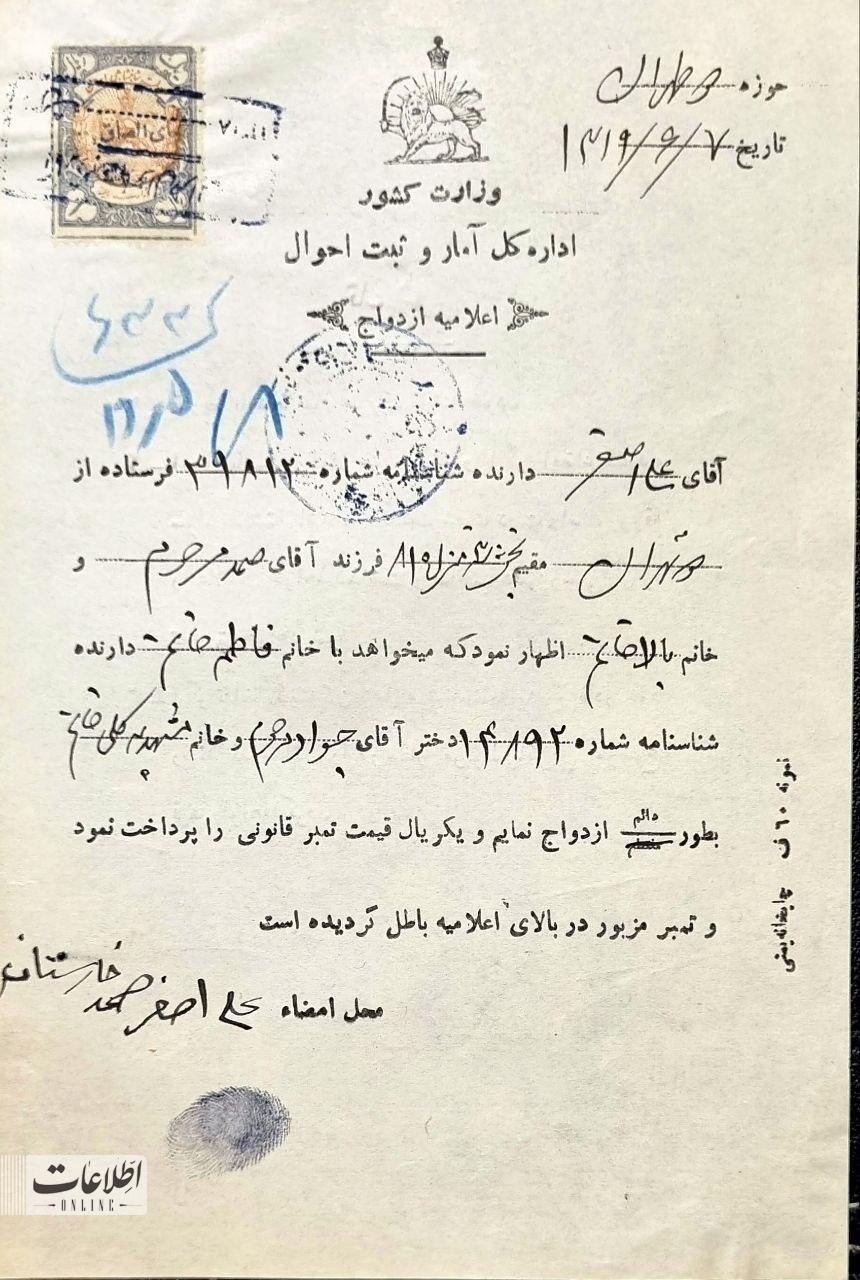 حوزه ۲ طهران
تاریخ ۱۳۱۹/۹/۷
وزارت کشور
اداره کل آمار و ثبت احوال
اعلامیه ازدواج
آقای علی اصغر دارنده شناسنامه شماره ۳۹۸۱۲ فرستاده از
تهران مقیم بخش ۳ فرزند آقای صمد مرحوم و
خانم بالا خانم اظهار نمود که میخواهد با خانم فاطمه خانم دارنده
شناسنامه شماره ۱۴۸۹۲ دختر آقای جواد مرحوم و خانم مشهدیه گلی خانم
بطور دائم ازدواج نمایم و یکریال قیمت تمبر قانونی را پرداخت نمود
منقطع
و تمبر مزبور در بالای اعلامیه باطل گردیده است
محل امضاء علی اصغر صمد
نمونه ۶۰ ف چاپخانه بهمنی
اطلاعات
ONLINE